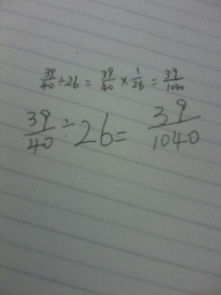 39/40 ÷ 26 = 39/40 × 1/26 = 39/1040
39/40 ÷ 26 = 39/1040